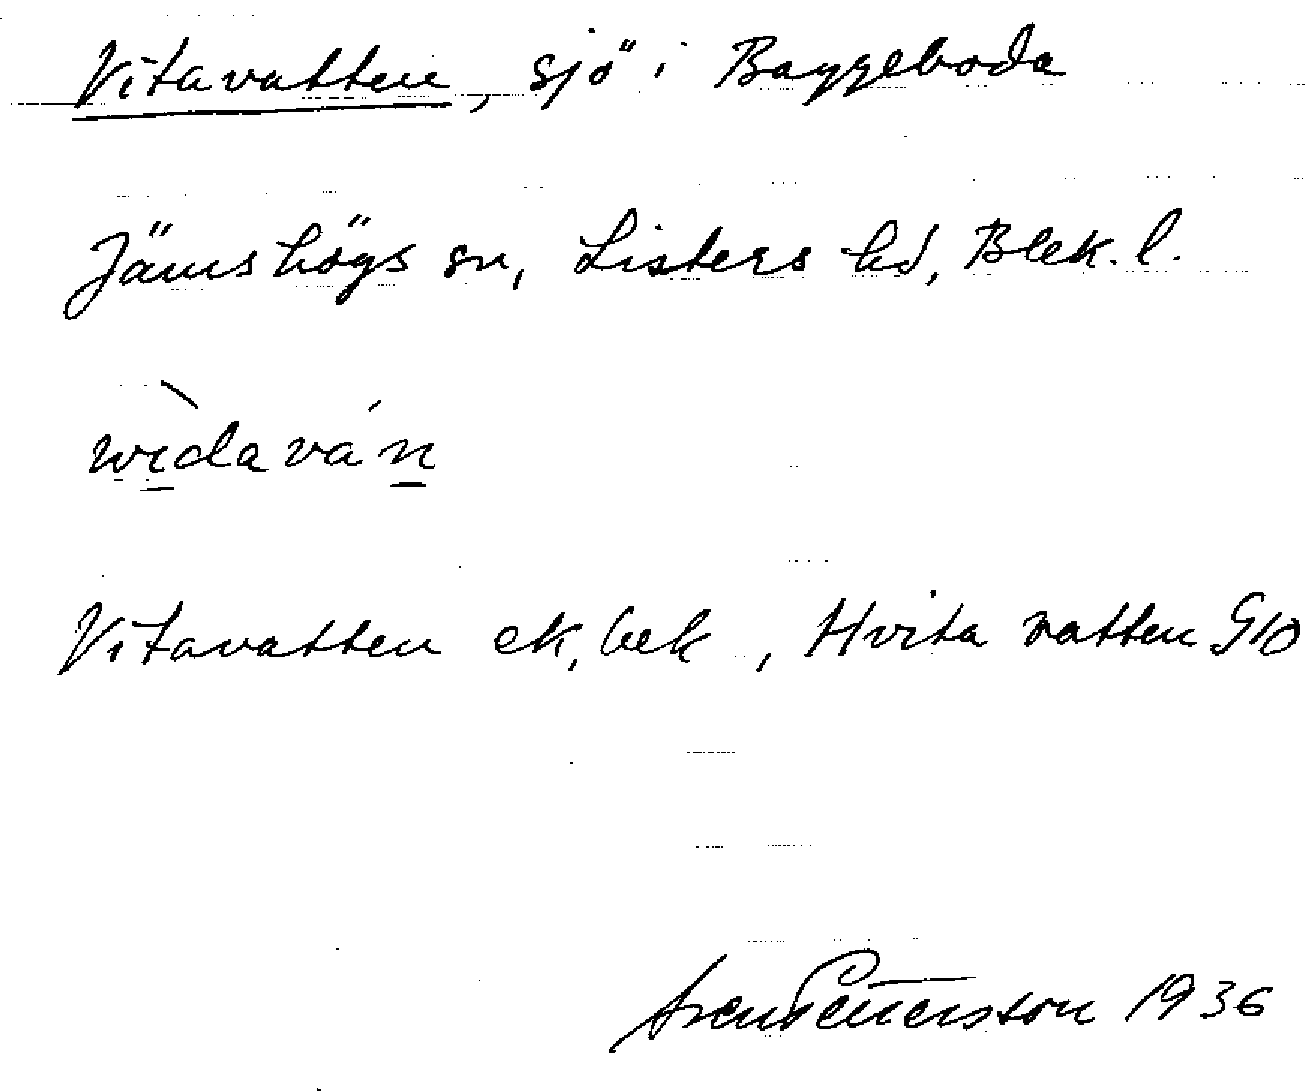 Vitavatten, sjö i Baggeboda
Jämshögs sn, Listers hd, Blek. l.
wìdaván
Vitavatten ek, bek, Hvita vatten G10
Sven Pettersson 1936